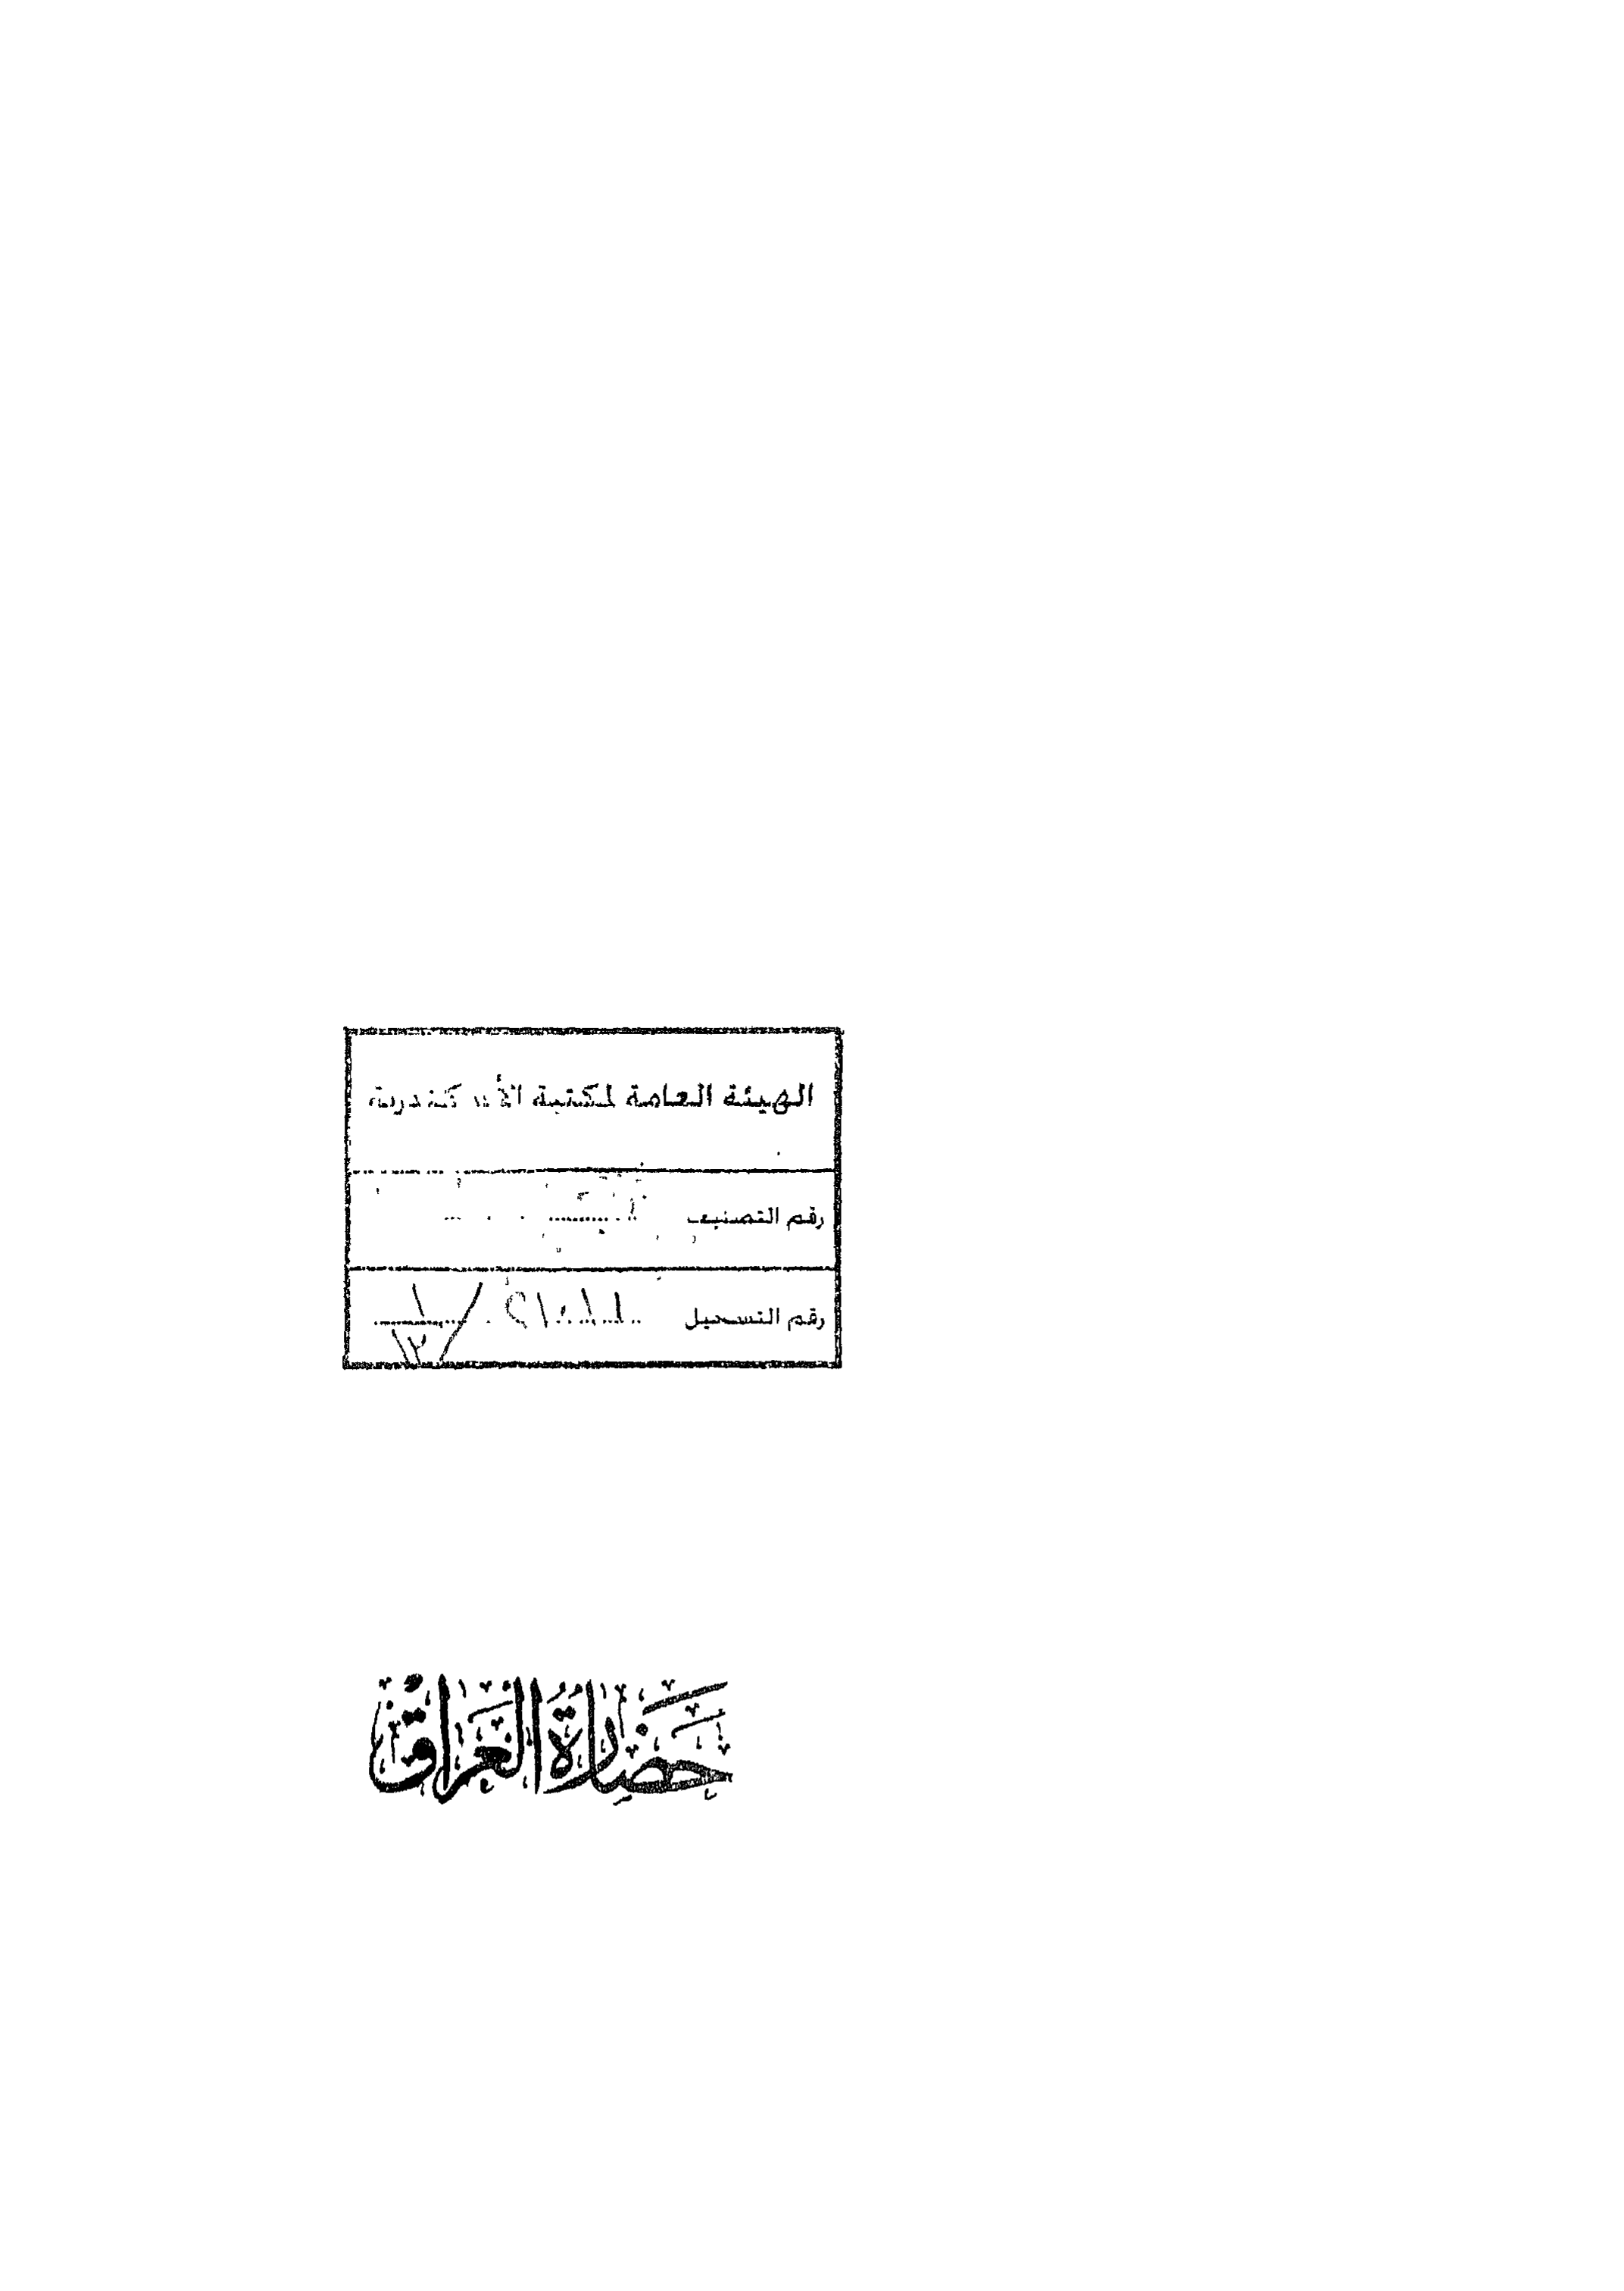 الهيئة العامة لمكتبة الأسكندرية
رقم التصنيف
رقم التسجيل
حَضَارَةُ العِرَاقْ